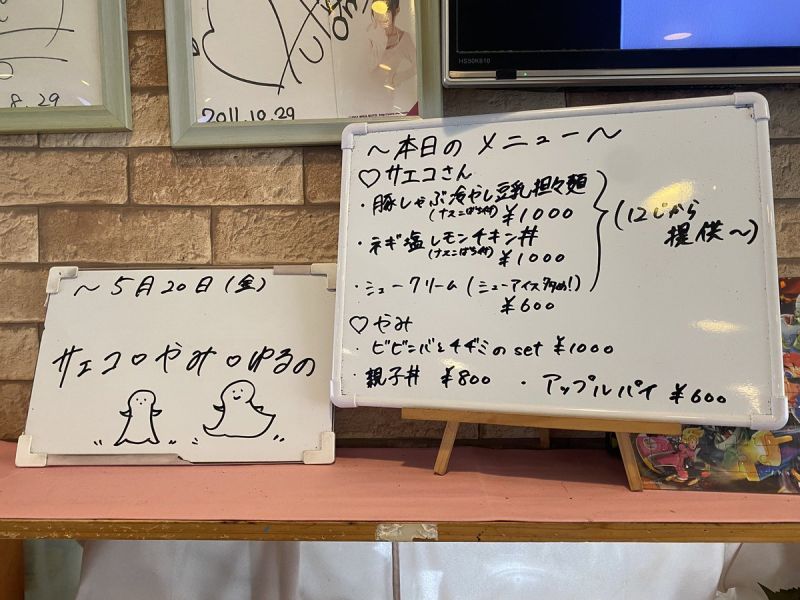 8.29
2011.10.29
HS50K610
〜本日のメニュー〜
♡サエコさん
・豚しゃぶ冷やし豆乳担々麺
(ナスこばち付) ¥1000
・ネギ塩レモンチキン丼
(ナスこばち付) ¥1000
・シュークリーム(シューアイス多め!)
¥600
(12じから
提供〜)
♡やみ
・ビビンバとチヂミのset ¥1000
・親子丼 ¥800 ・アップルパイ ¥600
〜5月20日(金)
サエコ♡やみ♡ゆるの